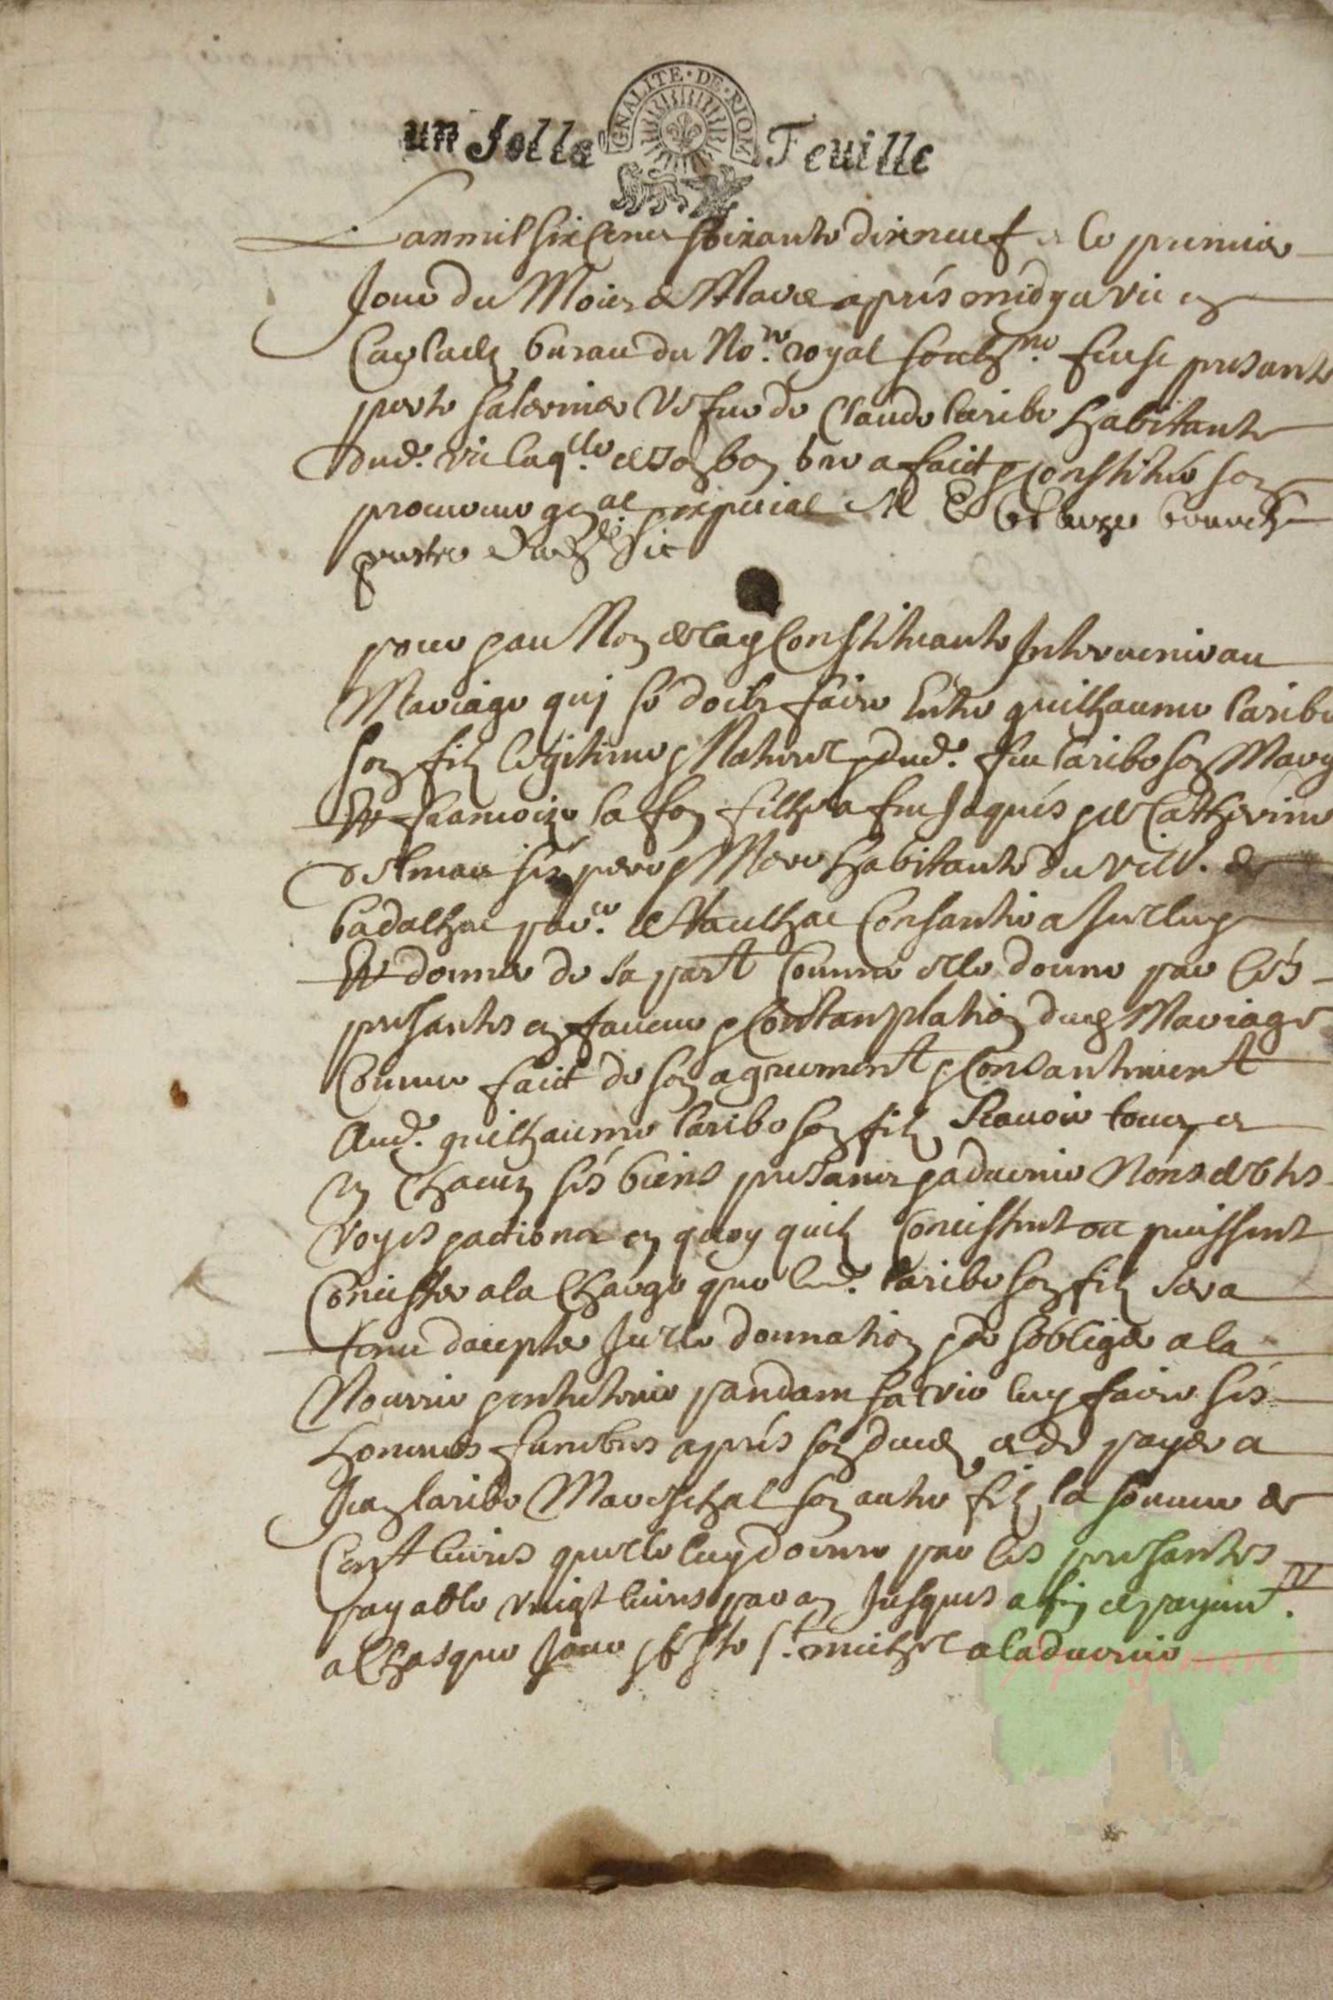 GNALITE · DE · RIOM
un solle Feuille
Lan mil six cens soixante dix neuf et le premier
Jour du Mois de Mars apres midy a vic en
Carlades bureau du No.re royal soubs.ne feust presante
salernier Vefve de Claude Caribe habitante
dud. vic laq.lle de son bon gre a faict et constitue son
procureur g.nal et special M E
prestre dud. Vic
pour et au Nom de lad Constituante Intervenir au
Mariage qui se doibt faire Entre guilhaume Caribe
son filz legitime et Naturel et dud. feu Caribe son Mary
Et francoize la fon filhe a feu Jaques et de Catherine
delmas ses pere et Mere habitante du vill. de
badalhac par.e de Raulhac Consantir a Jcelluy
Et donner de sa part Comme elle donne par les
presantes en faveur et Contamplation dud Mariage
Comme faict de son agreement et Consantement
Aud. guilhaume Caribe son filz Scavoir tous et
un Chacun ses biens presans et advenir Noms debtes
voyes et actions en quoy quilz Concistent ou puissent
Concister a la Charge que led. Caribe son filz sera
tenu dacepter Jcelle donnation et de sobliger a la
Nourrir et entretenir pandant sa vie luy faire ses
honneurs funebres apres son deces et de payer a
Jean Caribe Mareschal son autre filz la somme de
Cent livres quelle luy donne par les presantes
payable vingt livres par an Jusques a fin de payem.t
a Chasque Jour et feste s.t michel a ladvenir